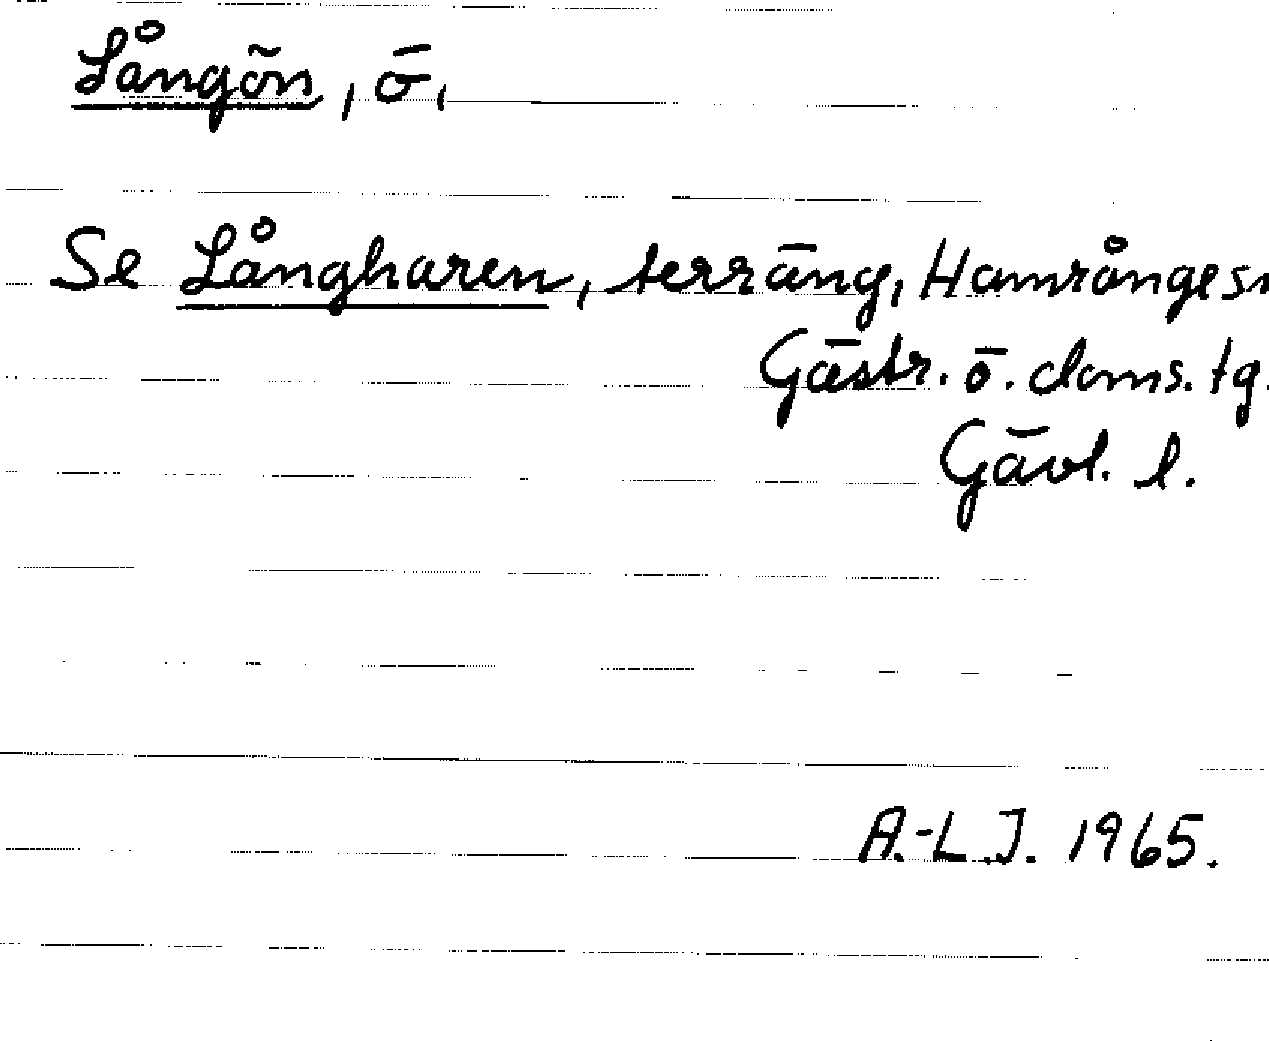 Långön, ö,
Se Långharen, terräng, Hamrånge sn
Gästr. ö. doms. tg.
Gävl. l.
A.-L.J. 1965.